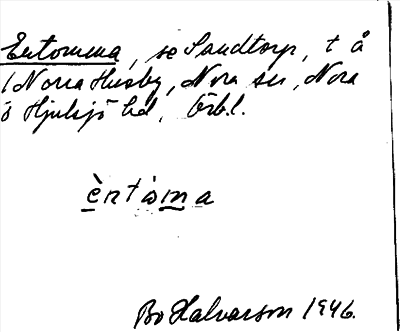 Entomma, se Sandtorp, t å
/ Norra Husby, Nora sn, Nora
o Hjulsjö hd, Örb.l.
èntòma
Bo Halvarson 1946.